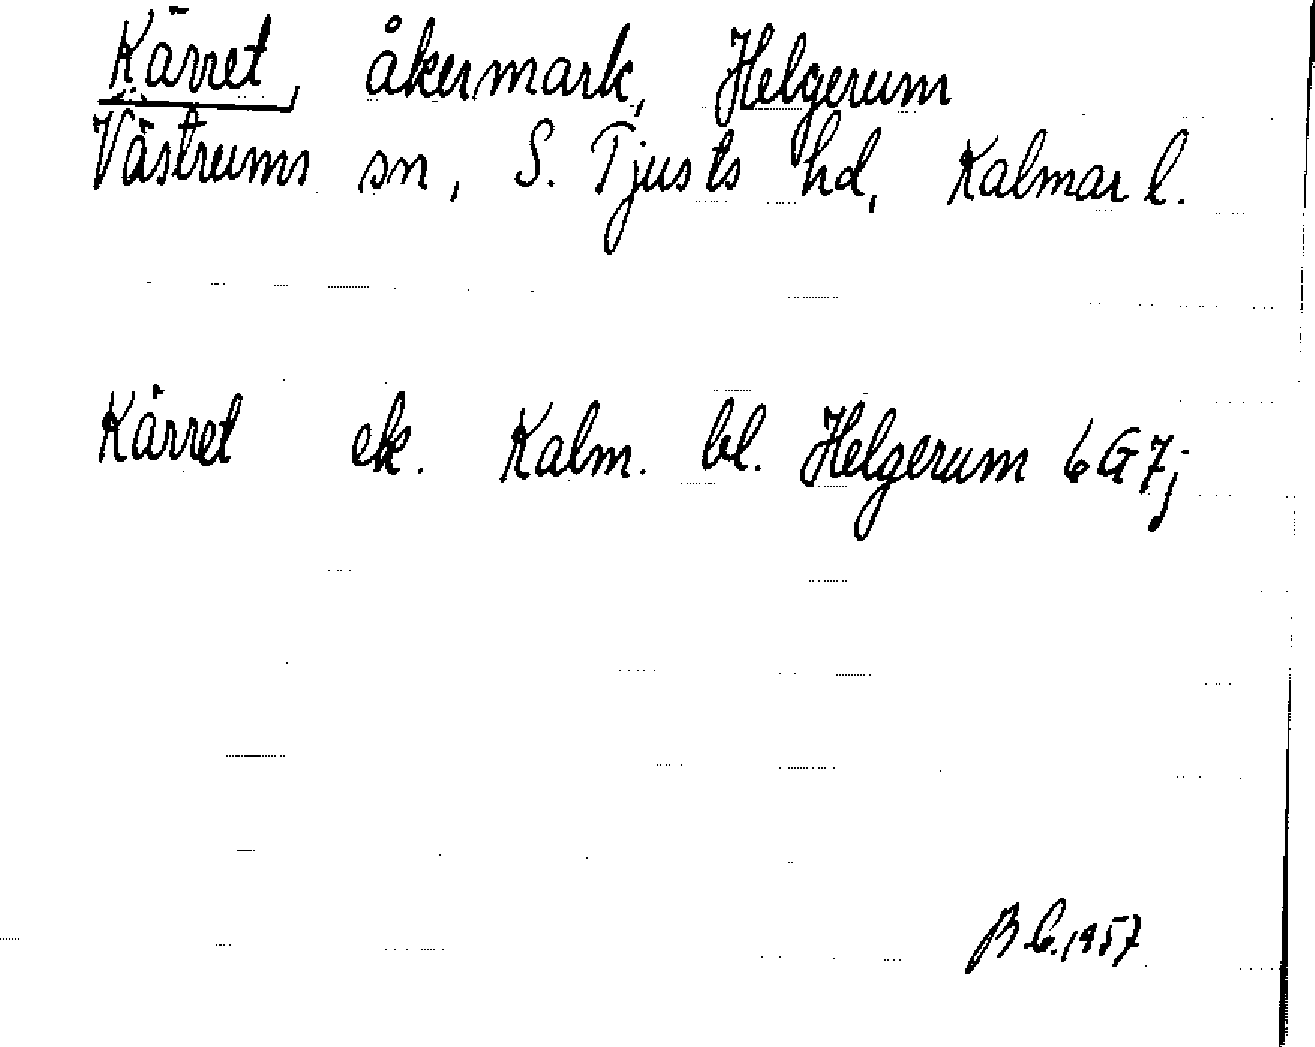 Kärret, åkermark, Helgerum
Västrums sn, S. Tjusts hd, Kalmar l.
Kärret ek. Kalm. bl. Helgerum 6G7j
B b. 1957